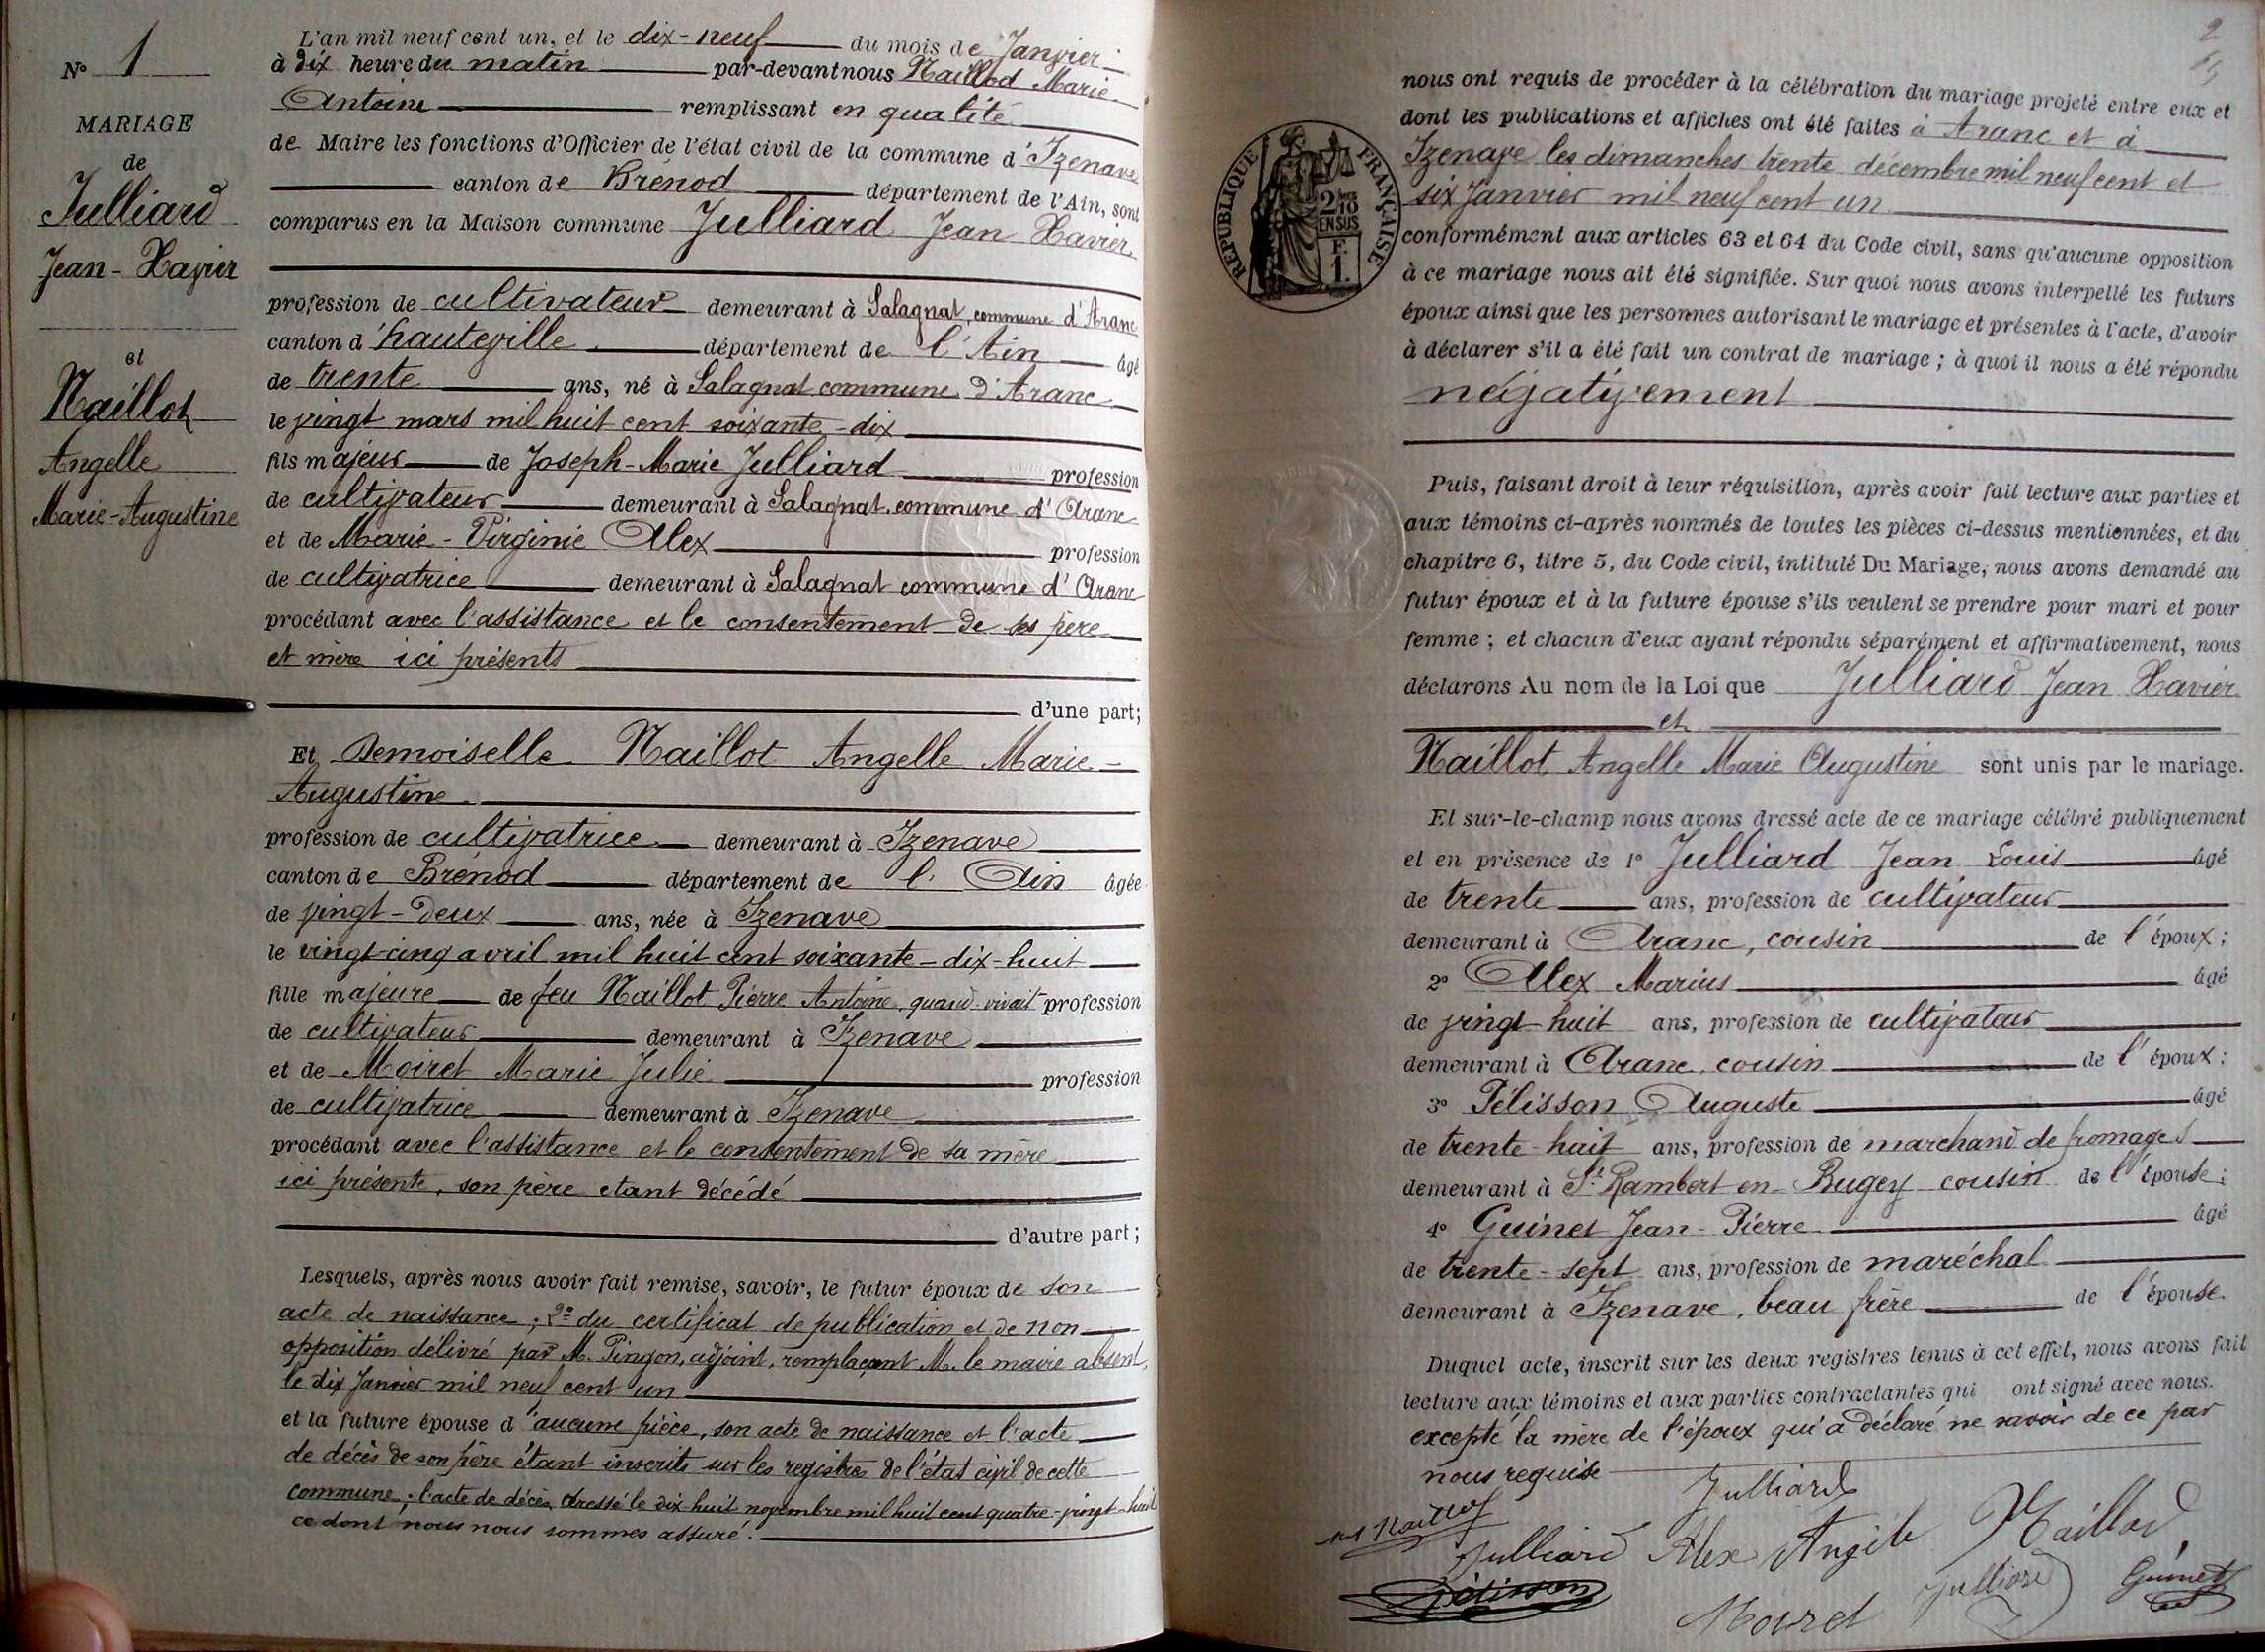 N° 1
MARIAGE
de
Julliard
Jean-Xavier
et
Naillot
Angelle
Marie-Augustine
L'an mil neuf cent un, et le dix-neuf du mois de Janvier
à dix heure du matin par-devant nous Naillod Marie
Antoine remplissant en qualité
de Maire les fonctions d'Officier de l'état civil de la commune d'Izenave
canton de Brénod département de l'Ain, sont
comparus en la Maison commune Julliard Jean Xavier
profession de cultivateur demeurant à Salagnat, commune d'Aranc
canton d'hauteville département de l'Ain âgé
de trente ans, né à Salagnat commune d'Aranc
le vingt mars mil huit cent soixante-dix
fils majeur de Joseph-Marie Julliard profession
de cultivateur demeurant à Salagnat commune d'Aranc
et de Marie-Virginie Alex profession
de cultivatrice demeurant à Salagnat commune d'Aranc
procédant avec l'assistance et le consentement de ses père
et mère ici présents
d'une part;
Et Demoiselle Naillot Angelle Marie-
Augustine
profession de cultivatrice demeurant à Izenave
canton de Brénod département de l'Ain âgée
de vingt-deux ans, née à Izenave
le vingt-cinq avril mil huit cent soixante-dix-huit
fille majeure de feu Naillot Pierre Antoine, quand vivait profession
de cultivateur demeurant à Izenave
et de Moiret Marie Julie profession
de cultivatrice demeurant à Izenave
procédant avec l'assistance et le consentement de sa mère
ici présente, son père étant décédé
d'autre part;
Lesquels, après nous avoir fait remise, savoir, le futur époux de son
acte de naissance; 2° du certificat de publication et de non
opposition délivré par M. Pingon, adjoint, remplaçant M. le maire absent,
le dix Janvier mil neuf cent un
et la future épouse d'aucune pièce, son acte de naissance et l'acte
de décès de son père étant inscrits sur les registres de l'état civil de cette
commune; l'acte de décès dressé le dix-huit novembre mil huit cent quatre-vingt-huit
ce dont nous nous sommes assuré.
2
nous ont requis de procéder à la célébration du mariage projeté entre eux et
dont les publications et affiches ont été faites à Aranc et à
Izenave les dimanches trente décembre mil neuf cent et
six Janvier mil neuf cent un
RÉPUBLIQUE FRANÇAISE
2/10 EN SUS
F.
1.
conformément aux articles 63 et 64 du Code civil, sans qu'aucune opposition
à ce mariage nous ait été signifiée. Sur quoi nous avons interpellé les futurs
époux ainsi que les personnes autorisant le mariage et présentes à l'acte, d'avoir
à déclarer s'il a été fait un contrat de mariage; à quoi il nous a été répondu
négativement
Puis, faisant droit à leur réquisition, après avoir fait lecture aux parties et
aux témoins ci-après nommés de toutes les pièces ci-dessus mentionnées, et du
chapitre 6, titre 5, du Code civil, intitulé Du Mariage, nous avons demandé au
futur époux et à la future épouse s'ils veulent se prendre pour mari et pour
femme; et chacun d'eux ayant répondu séparément et affirmativement, nous
déclarons Au nom de la Loi que Julliard Jean Xavier
et
Naillot Angelle Marie Augustine sont unis par le mariage.
Et sur-le-champ nous avons dressé acte de ce mariage célébré publiquement
et en présence de 1° Julliard Jean Louis âgé
de trente ans, profession de cultivateur
demeurant à Aranc, cousin de l'époux;
2° Alex Marius âgé
de vingt-huit ans, profession de cultivateur
demeurant à Aranc, cousin de l'époux;
3° Pélisson Auguste âgé
de trente-huit ans, profession de marchand de fromages
demeurant à St Rambert-en-Bugey cousin de l'épouse;
4° Guinet Jean-Pierre âgé
de trente-sept ans, profession de maréchal
demeurant à Izenave, beau frère de l'épouse.
Duquel acte, inscrit sur les deux registres tenus à cet effet, nous avons fait
lecture aux témoins et aux parties contractantes qui ont signé avec nous.
excepté la mère de l'époux qui a déclaré ne savoir de ce par
nous requise
Julliard
Naillod
Julliard Alex Angèle Naillod
Pélisson
Moiret
Julliard
Guinet